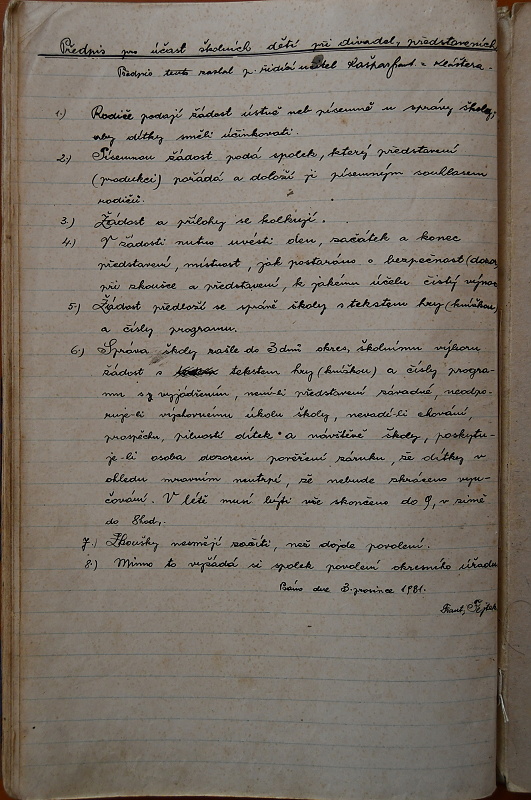 Předpis pro účast školních dětí při divadel, představeních
Předpis tento zaslal p. řídící učitel Kašpar Frant. z Kláštera.
1.) Rodiče podají žádost ústně neb písemně u správy školy,
aby dítky směli účinkovati.
2.) Písemnou žádost podá spolek, který představení
(produkci) pořádá a doloží ji písemným souhlasem
rodičů.
3.) Žádost a přílohy se kolkují.
4.) V žádosti nutno uvésti den, začátek a konec
představení, místnost, jak postaráno o bezpečnost (dozor
při zkoušce a představení, k jakému účelu čistý výnos
5.) Žádost předloží se správě školy s tekstem hry (knížkou)
a čísly programu.
6.) Správa školy zašle do 3 dnů okres, školnímu výboru
žádost s tekstem hry (knížkou) a čísly progra-
mu s vyjádřením, není-li představení závadné, neodpo-
ruje-li výchovnému úkolu školy, nevadí-li chování,
prospěchu, pilnosti dítek a návštěvě školy, poskytu-
je-li osoba dozorem pověření záruku, že dítky v
ohledu mravním neutrpí, že nebude zkráceno vyu-
čování. V létě musí býti vše skončeno do 9, v zimě
do 8 hod,.
7.) Zkoušky nesmějí začíti, než dojde povolení.
8.) Mimo to vyžádá si spolek povolení okresního úřadu
dne 3. prosince 1931.
Frant,